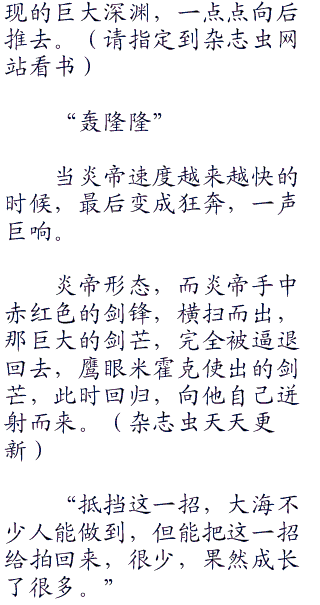 现的巨大深渊，一点点向后
推去。（请指定到杂志虫网
站看书）
“轰隆隆”
当炎帝速度越来越快的
时候，最后变成狂奔，一声
巨响。
炎帝形态，而炎帝手中
赤红色的剑锋，横扫而出，
那巨大的剑芒，完全被逼退
回去，鹰眼米霍克使出的剑
芒，此时回归，向他自己迸
射而来。（杂志虫天天更
新）
“抵挡这一招，大海不
少人能做到，但能把这一招
给拍回来，很少，果然成长
了很多。”